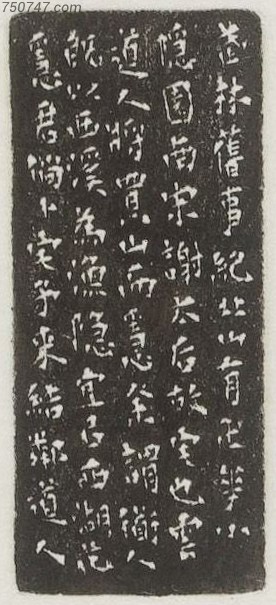 武林舊事紀北山有華小
隱園南宋謝太后故宅也雲
道人將買山而隱余謂道人
既以西溪為漁隱宜占西湖花
隱君倘卜宅予來結鄰道人
750747.com